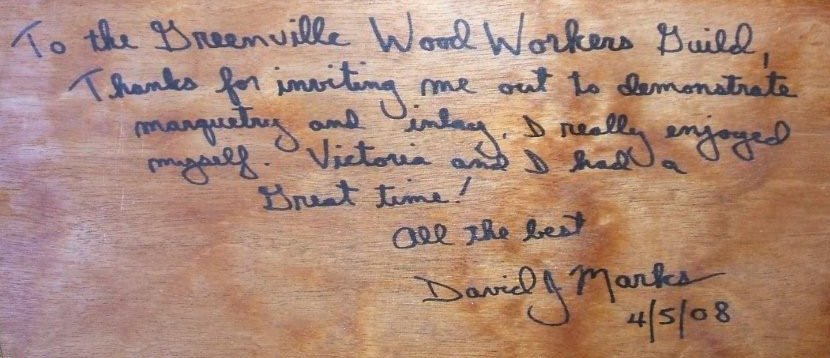 To the Greenville Wood Workers Guild,
Thanks for inviting me out to demonstrate
marquetry and inlay. I really enjoyed
myself. Victoria and I had a
Great time!
All the best
David J Marks
4/5/08